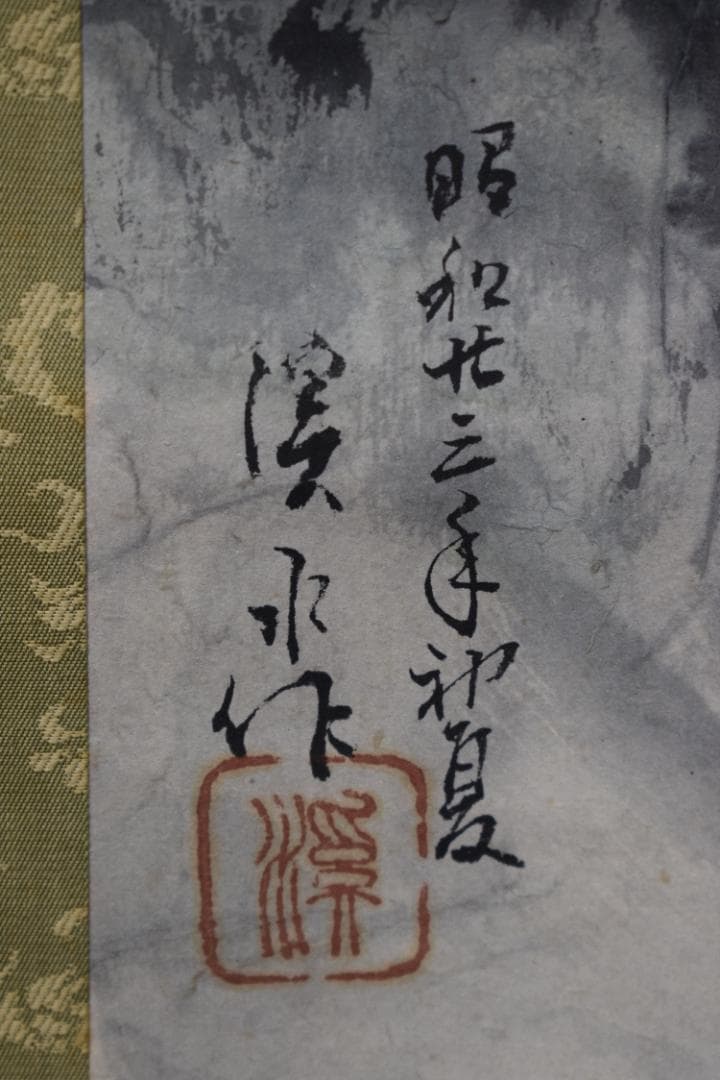 昭和廿三年初夏
溪水作
溪